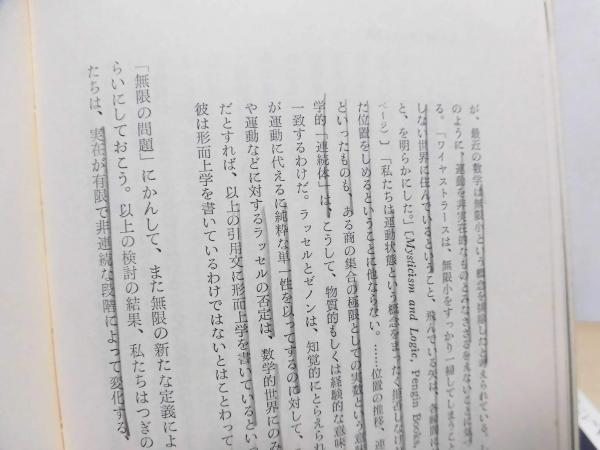 が、最近の数学は無限小という概念を排除したと考えられている。
のように、運動を非実在的なものとみなさざるをえない
る。「ワイヤストラースは、無限小をすっかり一掃してしまうこと
しない世界に住んでいるということ、飛んでいる矢は、各瞬間に
と、を明らかにした。」〔Mysticism and Logic, Pengin Books,
ページ〕「私たちは運動状態という概念をまったく拒否しなけ
た位置をしめるということに他ならない。……位置の推移、連
といったものも、ある商の集合の極限としての実数という意味
学的「連続体」は、こうして、物質的もしくは経験的な意味
一致するわけだ。ラッセルとゼノンは、知覚的にとらえられ
が運動に代えるに純粋な単一性を以ってするのに対して、
や運動などに対するラッセルの否定は、数学的世界にのみ
だとすれば、以上の引用文に形而上学を書いているといって
彼は形而上学を書いているわけではないとはことわって
「無限の問題」にかんして、また無限の新たな定義によ
らいにしておこう。以上の検討の結果、私たちはつぎの
たちは、実在が有限で非連続な段階によって変化する、